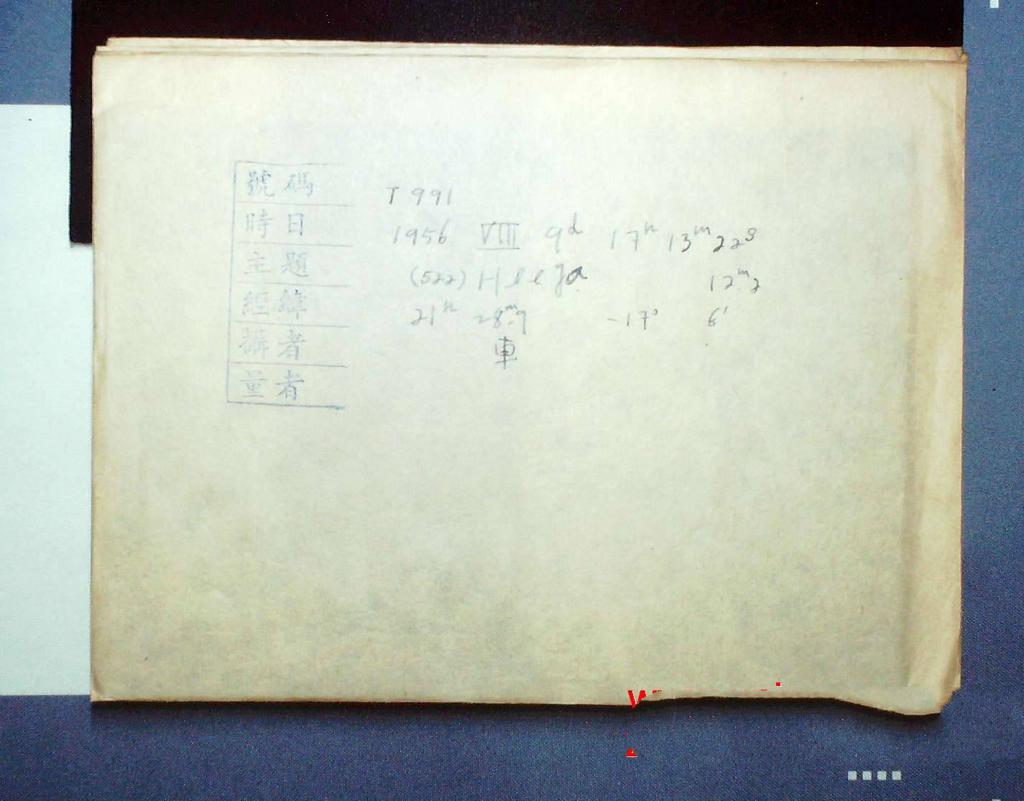 號碼 T 991
時日 1956 VIII 9d 17h 13m 22s
主題 (522) Helga 12m.2
經緯 21h 28m.9 -17° 6'
攝者 車
量者